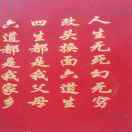 人生无死幻无穷
改头换面六道生
四生都是我父母
六道都是我家乡